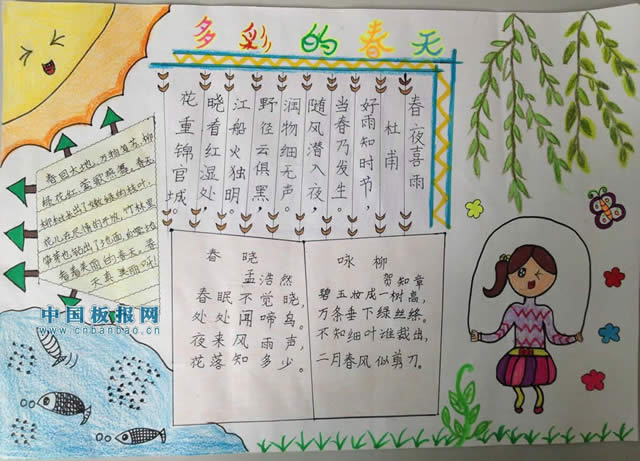 多彩的春天
春夜喜雨
杜甫
好雨知时节，
当春乃发生。
随风潜入夜，
润物细无声。
野径云俱黑，
江船火独明。
晓看红湿处，
花重锦官城。
春回大地，万物复苏，柳
绿花红，莺歌燕舞。春天
柳树长出了嫩绿的枝叶，
花儿在尽情的开放，竹林里
笋芽也钻出了地面，
看着美丽的春天。春
天真美丽呀！
春晓
孟浩然
春眠不觉晓，
处处闻啼鸟。
夜来风雨声，
花落知多少。
咏柳
贺知章
碧玉妆成一树高，
万条垂下绿丝绦。
不知细叶谁裁出，
二月春风似剪刀。
中国板报网
www.cnbanbao.cn